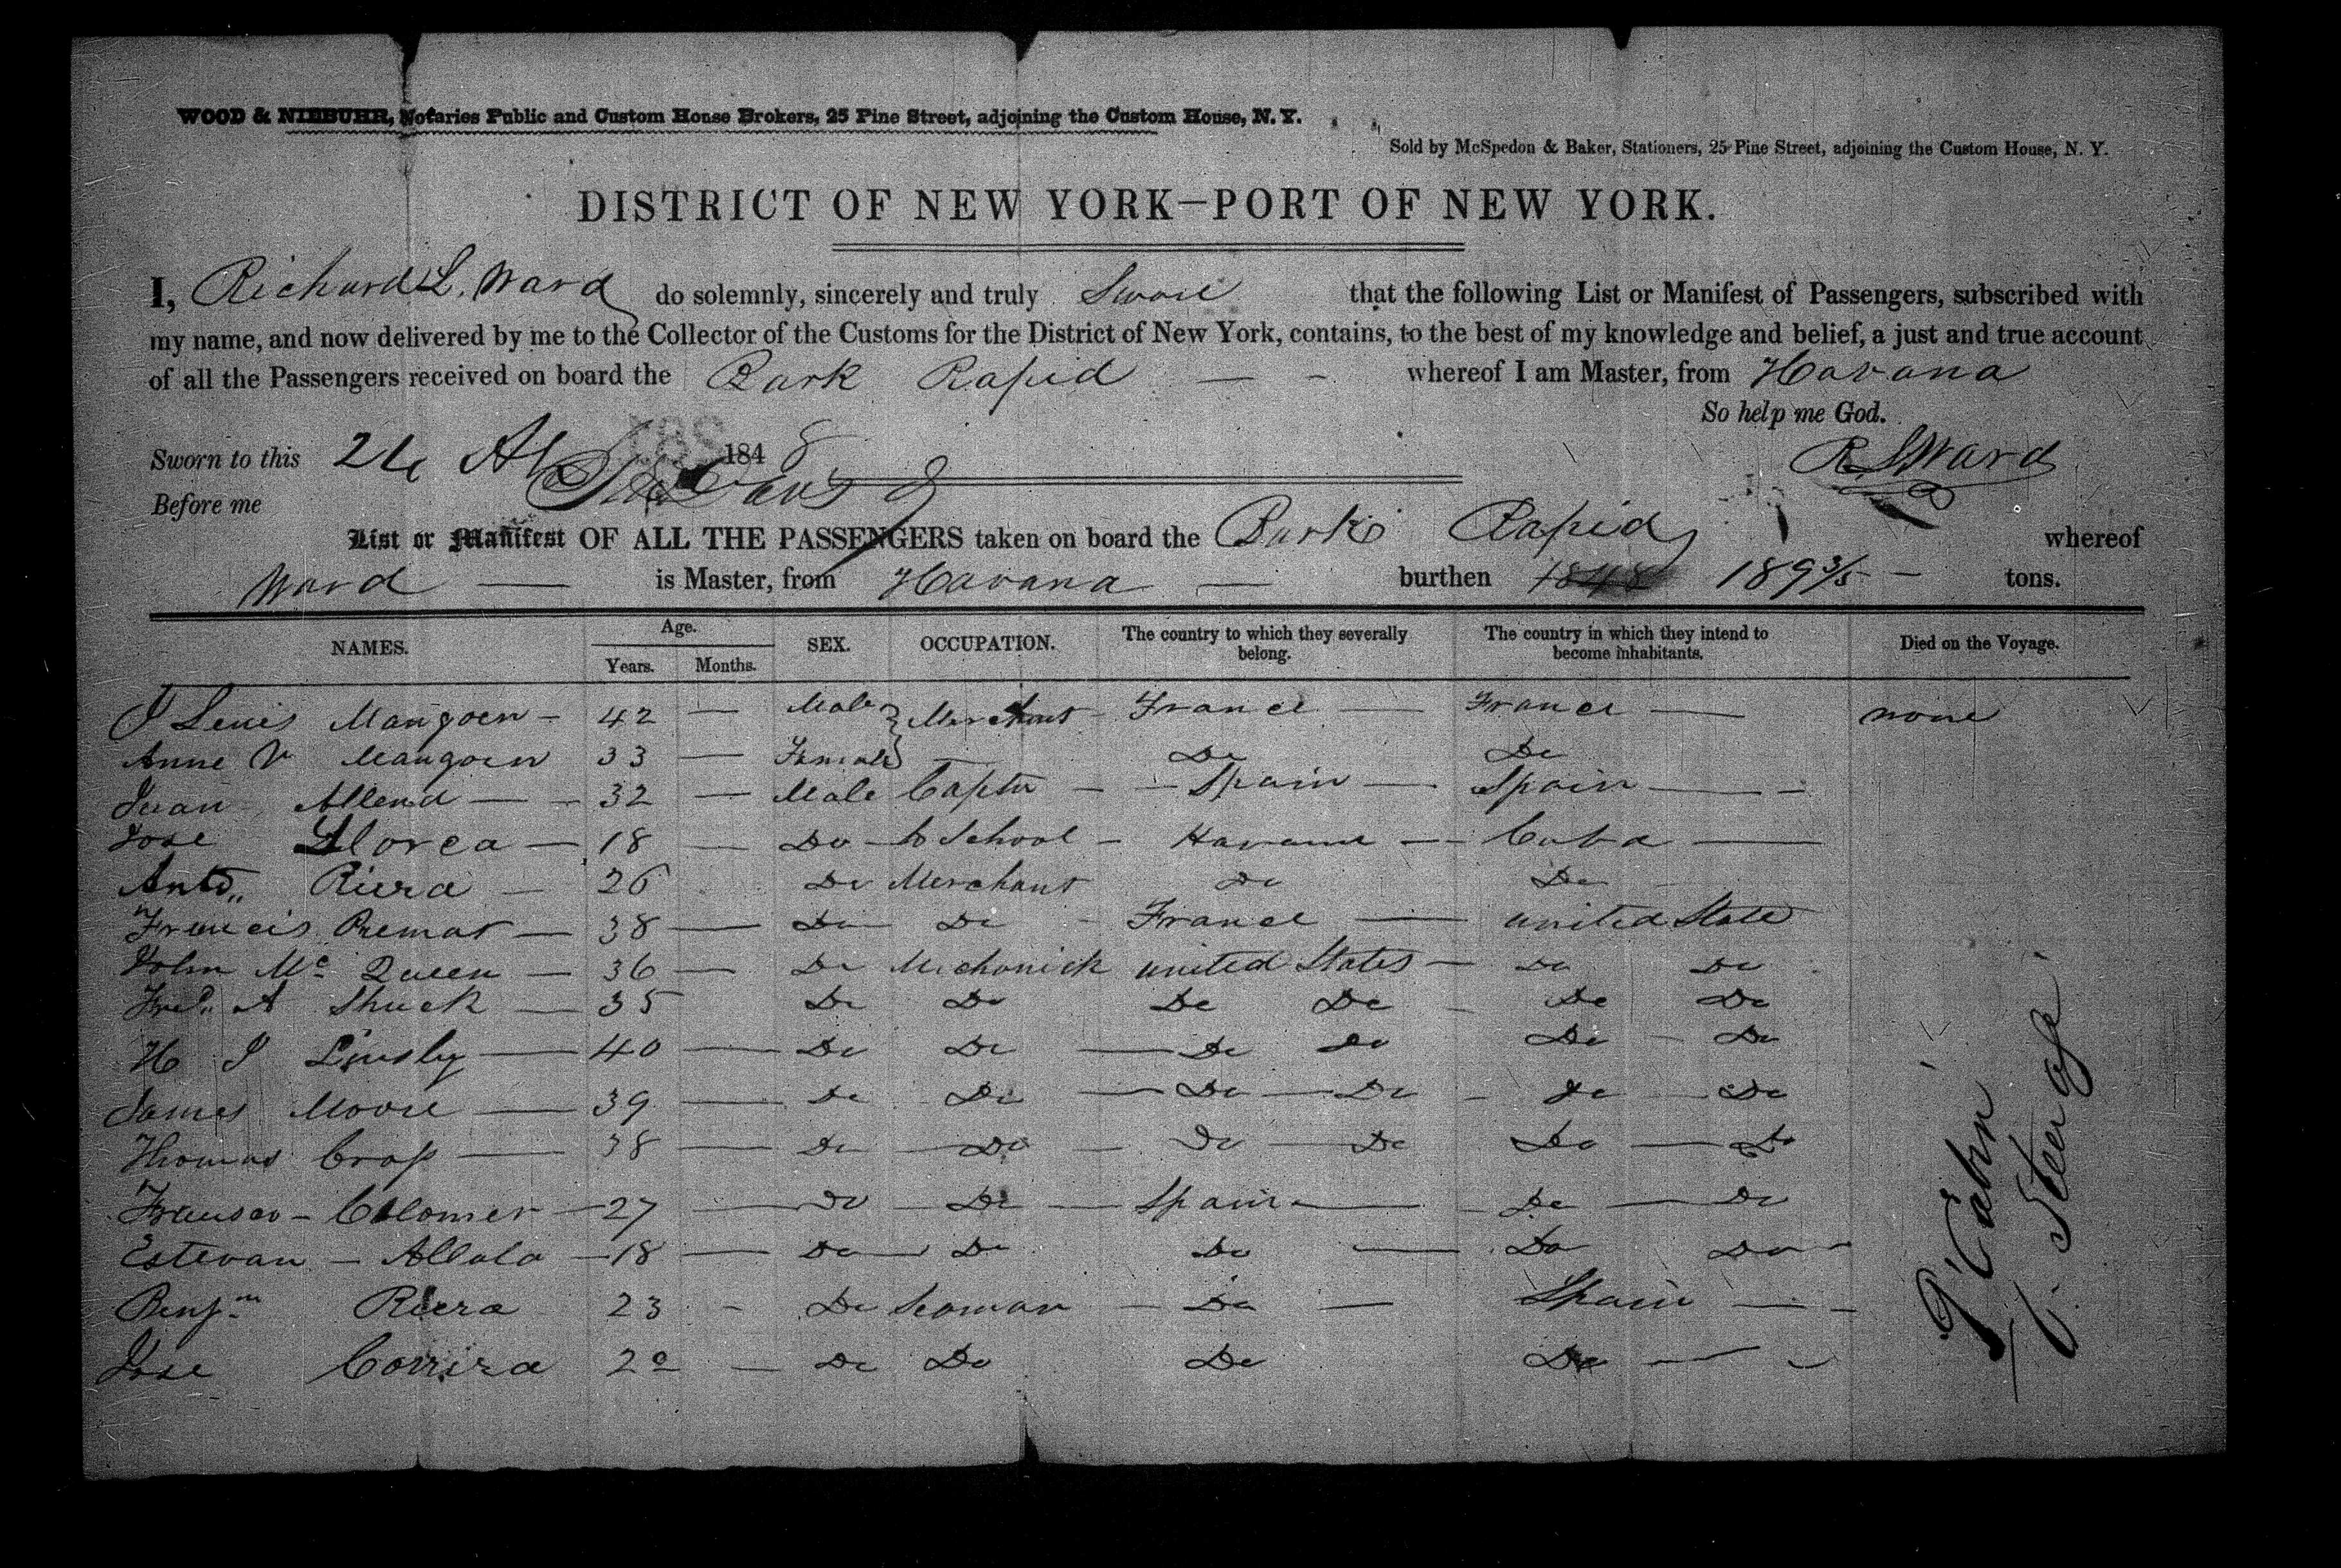 WOOD & NIEBUHR, Notaries Public and Custom House Brokers, 25 Pine Street, adjoining the Custom House, N. Y.
Sold by McSpedon & Baker, Stationers, 25 Pine Street, adjoining the Custom House, N. Y.
DISTRICT OF NEW YORK—PORT OF NEW YORK.
I, Richard L. Ward do solemnly, sincerely and truly Swear that the following List or Manifest of Passengers, subscribed with
my name, and now delivered by me to the Collector of the Customs for the District of New York, contains, to the best of my knowledge and belief, a just and true account
of all the Passengers received on board the Bark Rapid — - whereof I am Master, from Havana
So help me God.
Sworn to this 26 1848
R L Ward
Before me
List or Manifest OF ALL THE PASSENGERS taken on board the Bark Rapid whereof
Ward — is Master, from Havana — burthen 1848 189 3/5 - tons.
NAMES. Age. SEX. OCCUPATION. The country to which they severally belong. The country in which they intend to become inhabitants. Died on the Voyage.
Years. Months.
J Louis Mangoen - 42 — Male Merchant France — France — none
Anne V Mangoen 33 — Female — Do Do
Juan Allend — 32 — Male Captn - Spain — Spain —
Jose Llorca — 18 — Do to School - Havana — Cuba —
Anto,, Riera — 26 Do Merchant Do Do
Francis Remat — 38 — Do Do France — united State
John Mc Queen — 36 — Do Mechanick united States — Do Do
Fred. A Shuck — 35 Do Do Do Do Do Do
H J Linsly — 40 — Do Do — Do Do Do Do
James Moore — 39 — Do Do — Do — Do Do Do
Thomas Crop — 38 — Do — Do — Do — Do Do — Do
Fransco - Colomer — 27 — Do — Do — Spain — Do — Do
Estevan — Allala — 18 — Do — Do Do — Do Do
Benjm Riera 23 - Do Seaman — Do — Spain —
Jose Corrira 20 — Do Do Do Do —
9 Cabin
6. Steerage